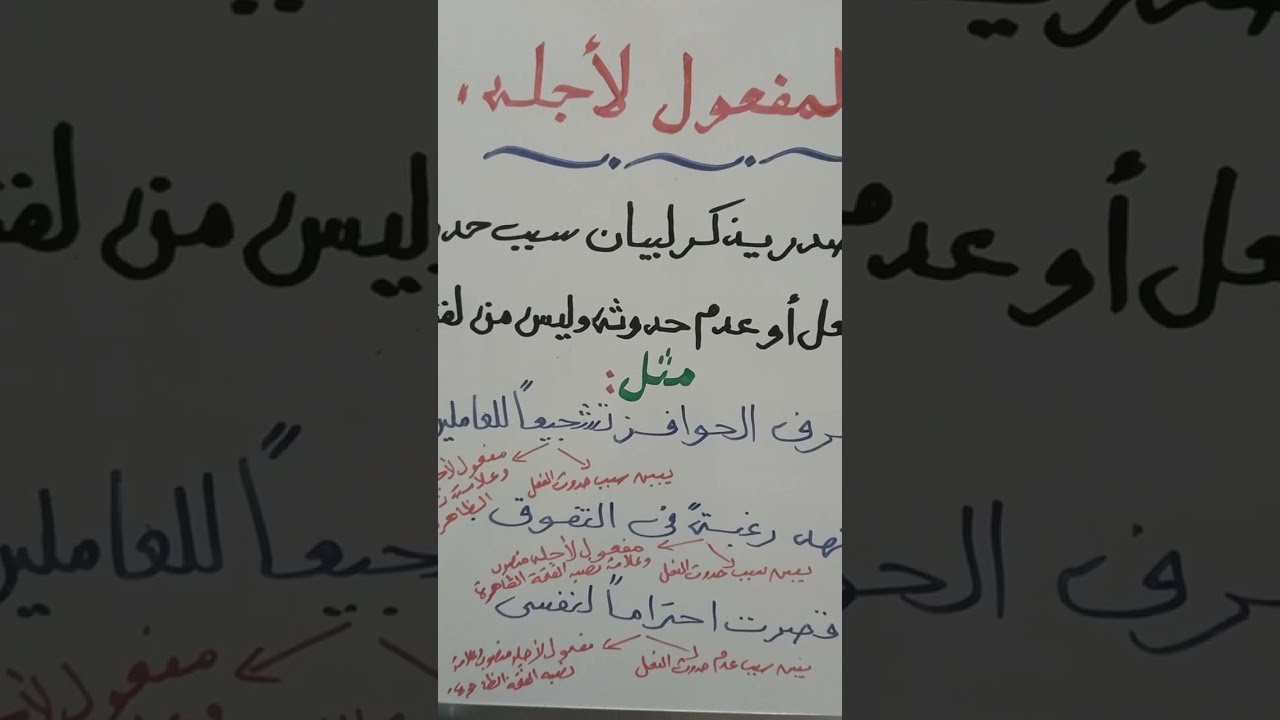 لمفعول لأجله،
صدر يذكر لبيان سبب حد
عل أو عدم حدوثه وليس من لفظ
مثل:
رف الحوافز تشجيعاً للعاملين
يبين سبب حدوث الفعل
مفعول لأج
وعلامة
الظاهر
رغبةً في التفوق
يبين سبب حدوث الفعل
مفعول لأجله منصوب
وعلامة نصبه الفتحة الظاهرة
احتراماً لنفسى
يبين سبب عدم حدوث الفعل
مفعول لأجله منصوب وعلامة
نصبه الفتحة الظاهرة،